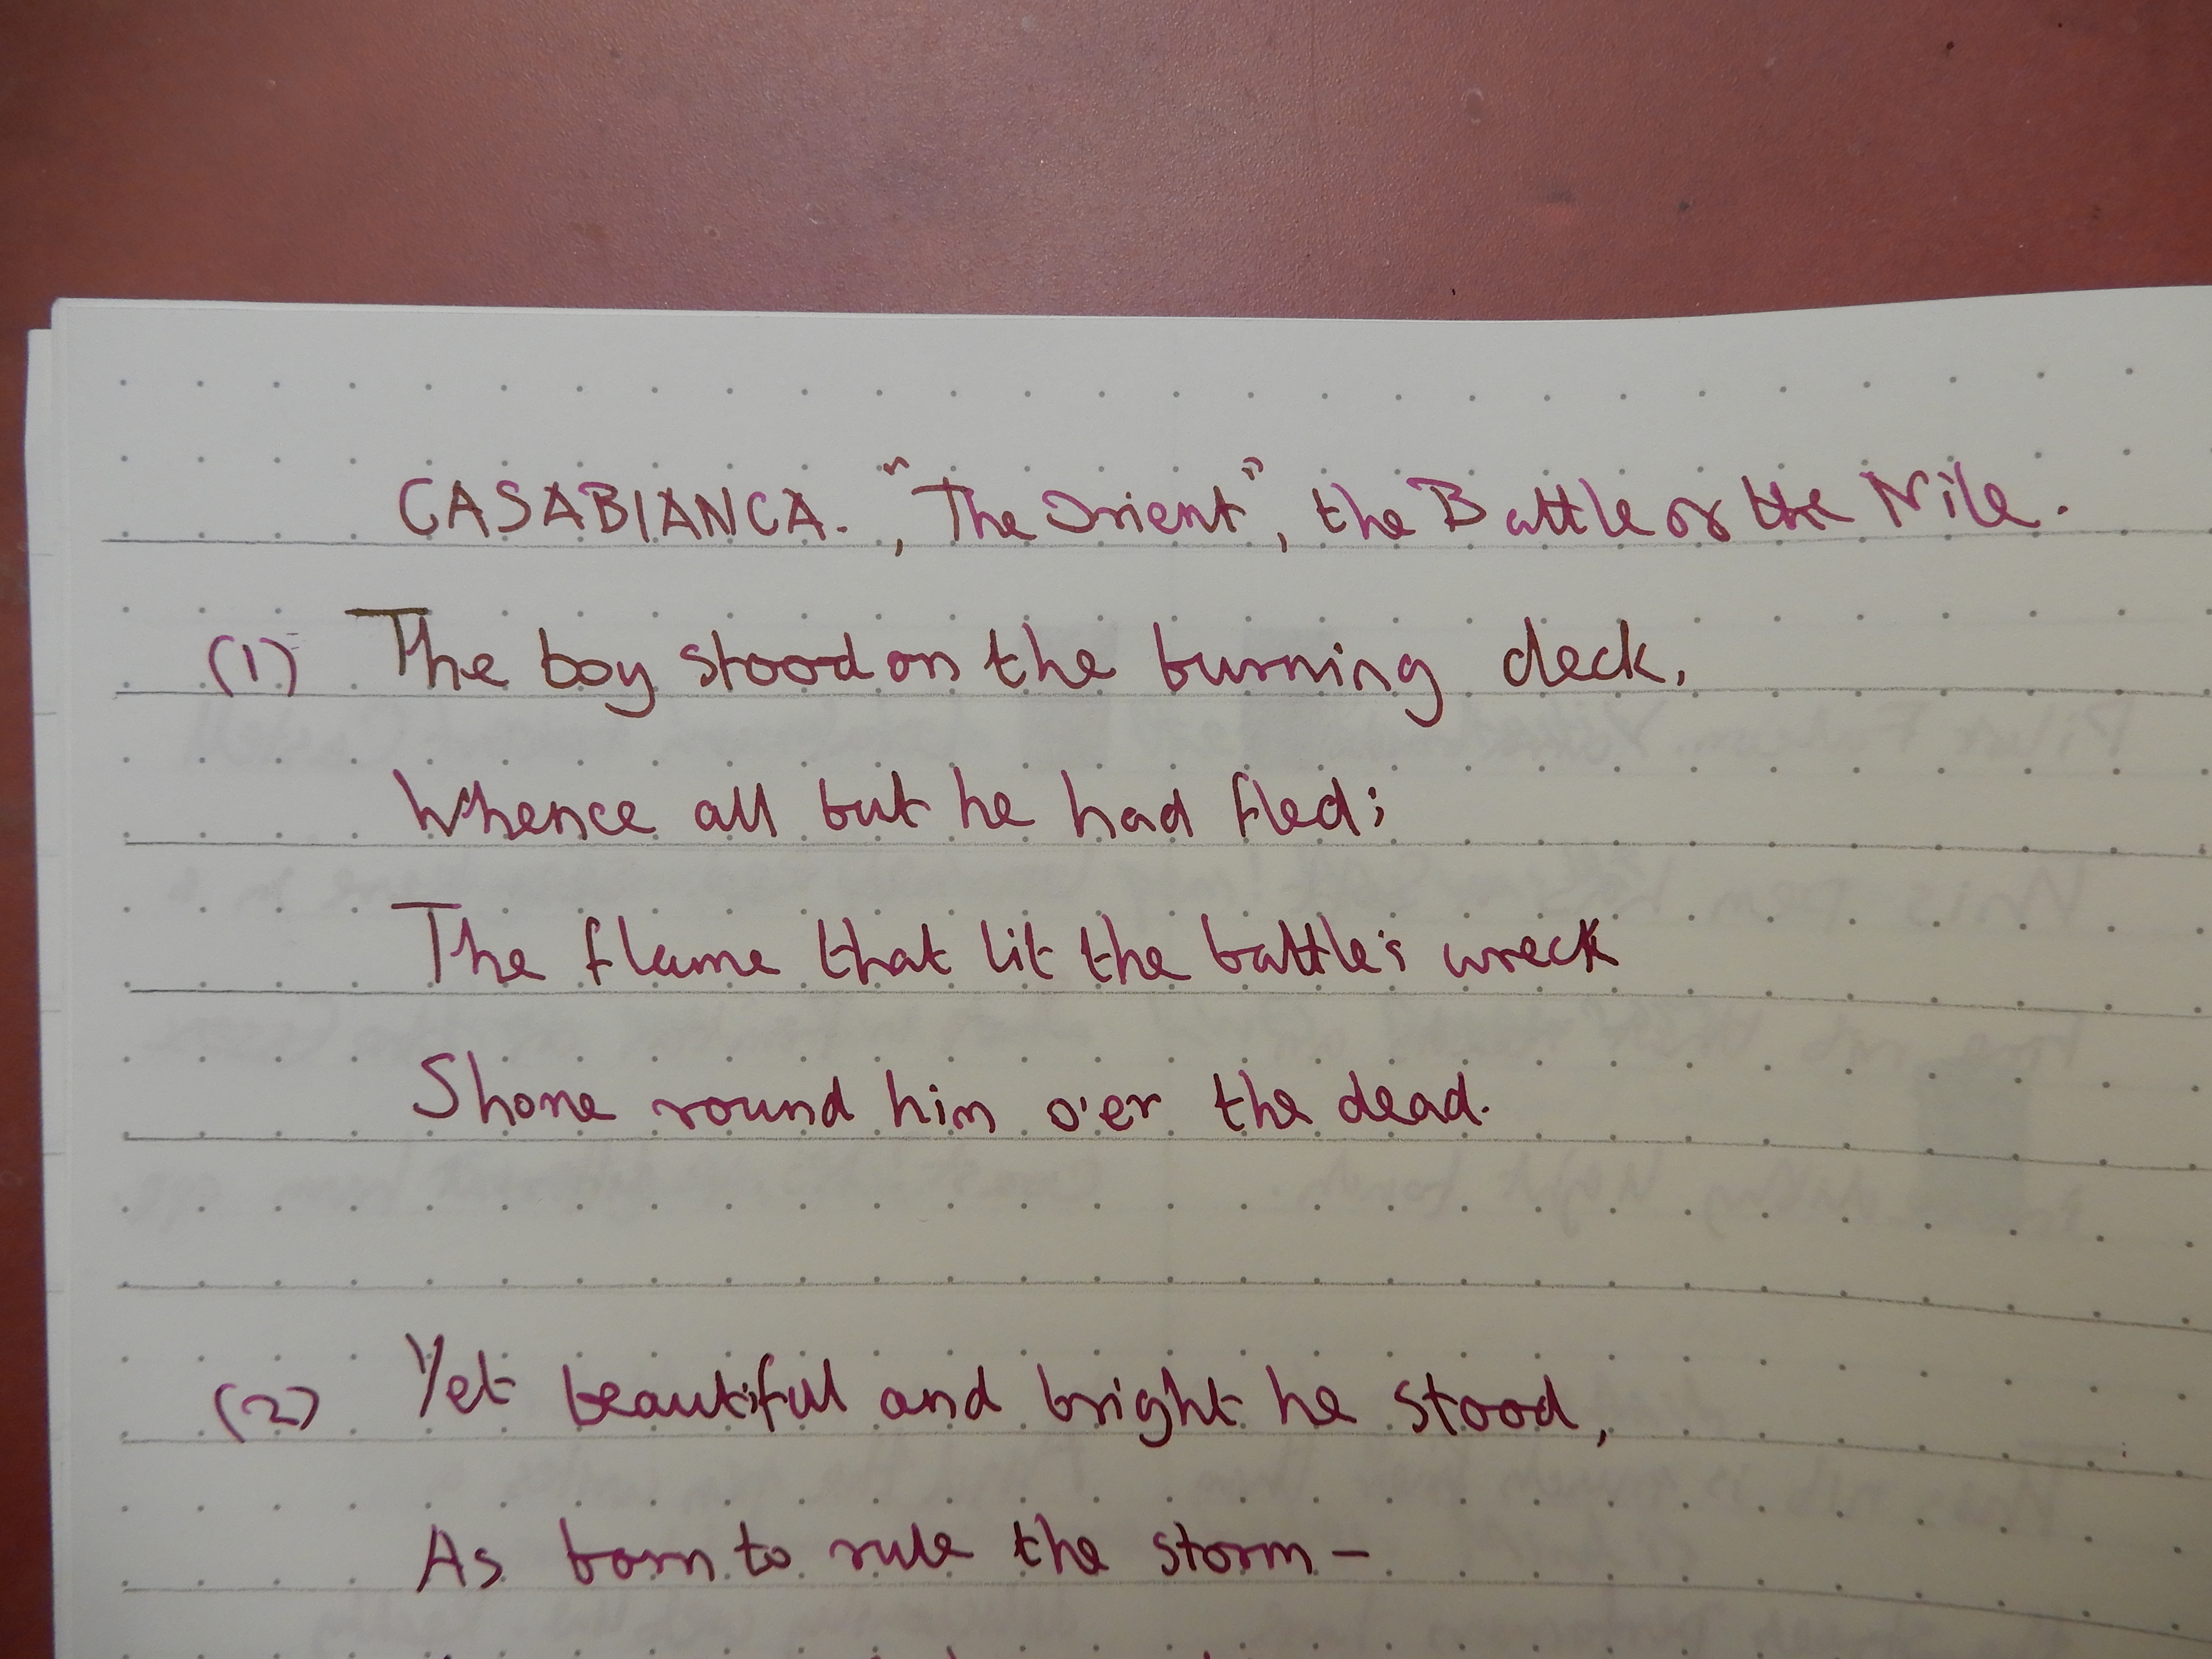 CASABIANCA. , "The Orient", the Battle of the Nile.
(1) The boy stood on the burning deck,
Whence all but he had fled;
The flame that lit the battle's wreck
Shone round him o'er the dead.
(2) Yet beautiful and bright he stood,
As born to rule the storm –